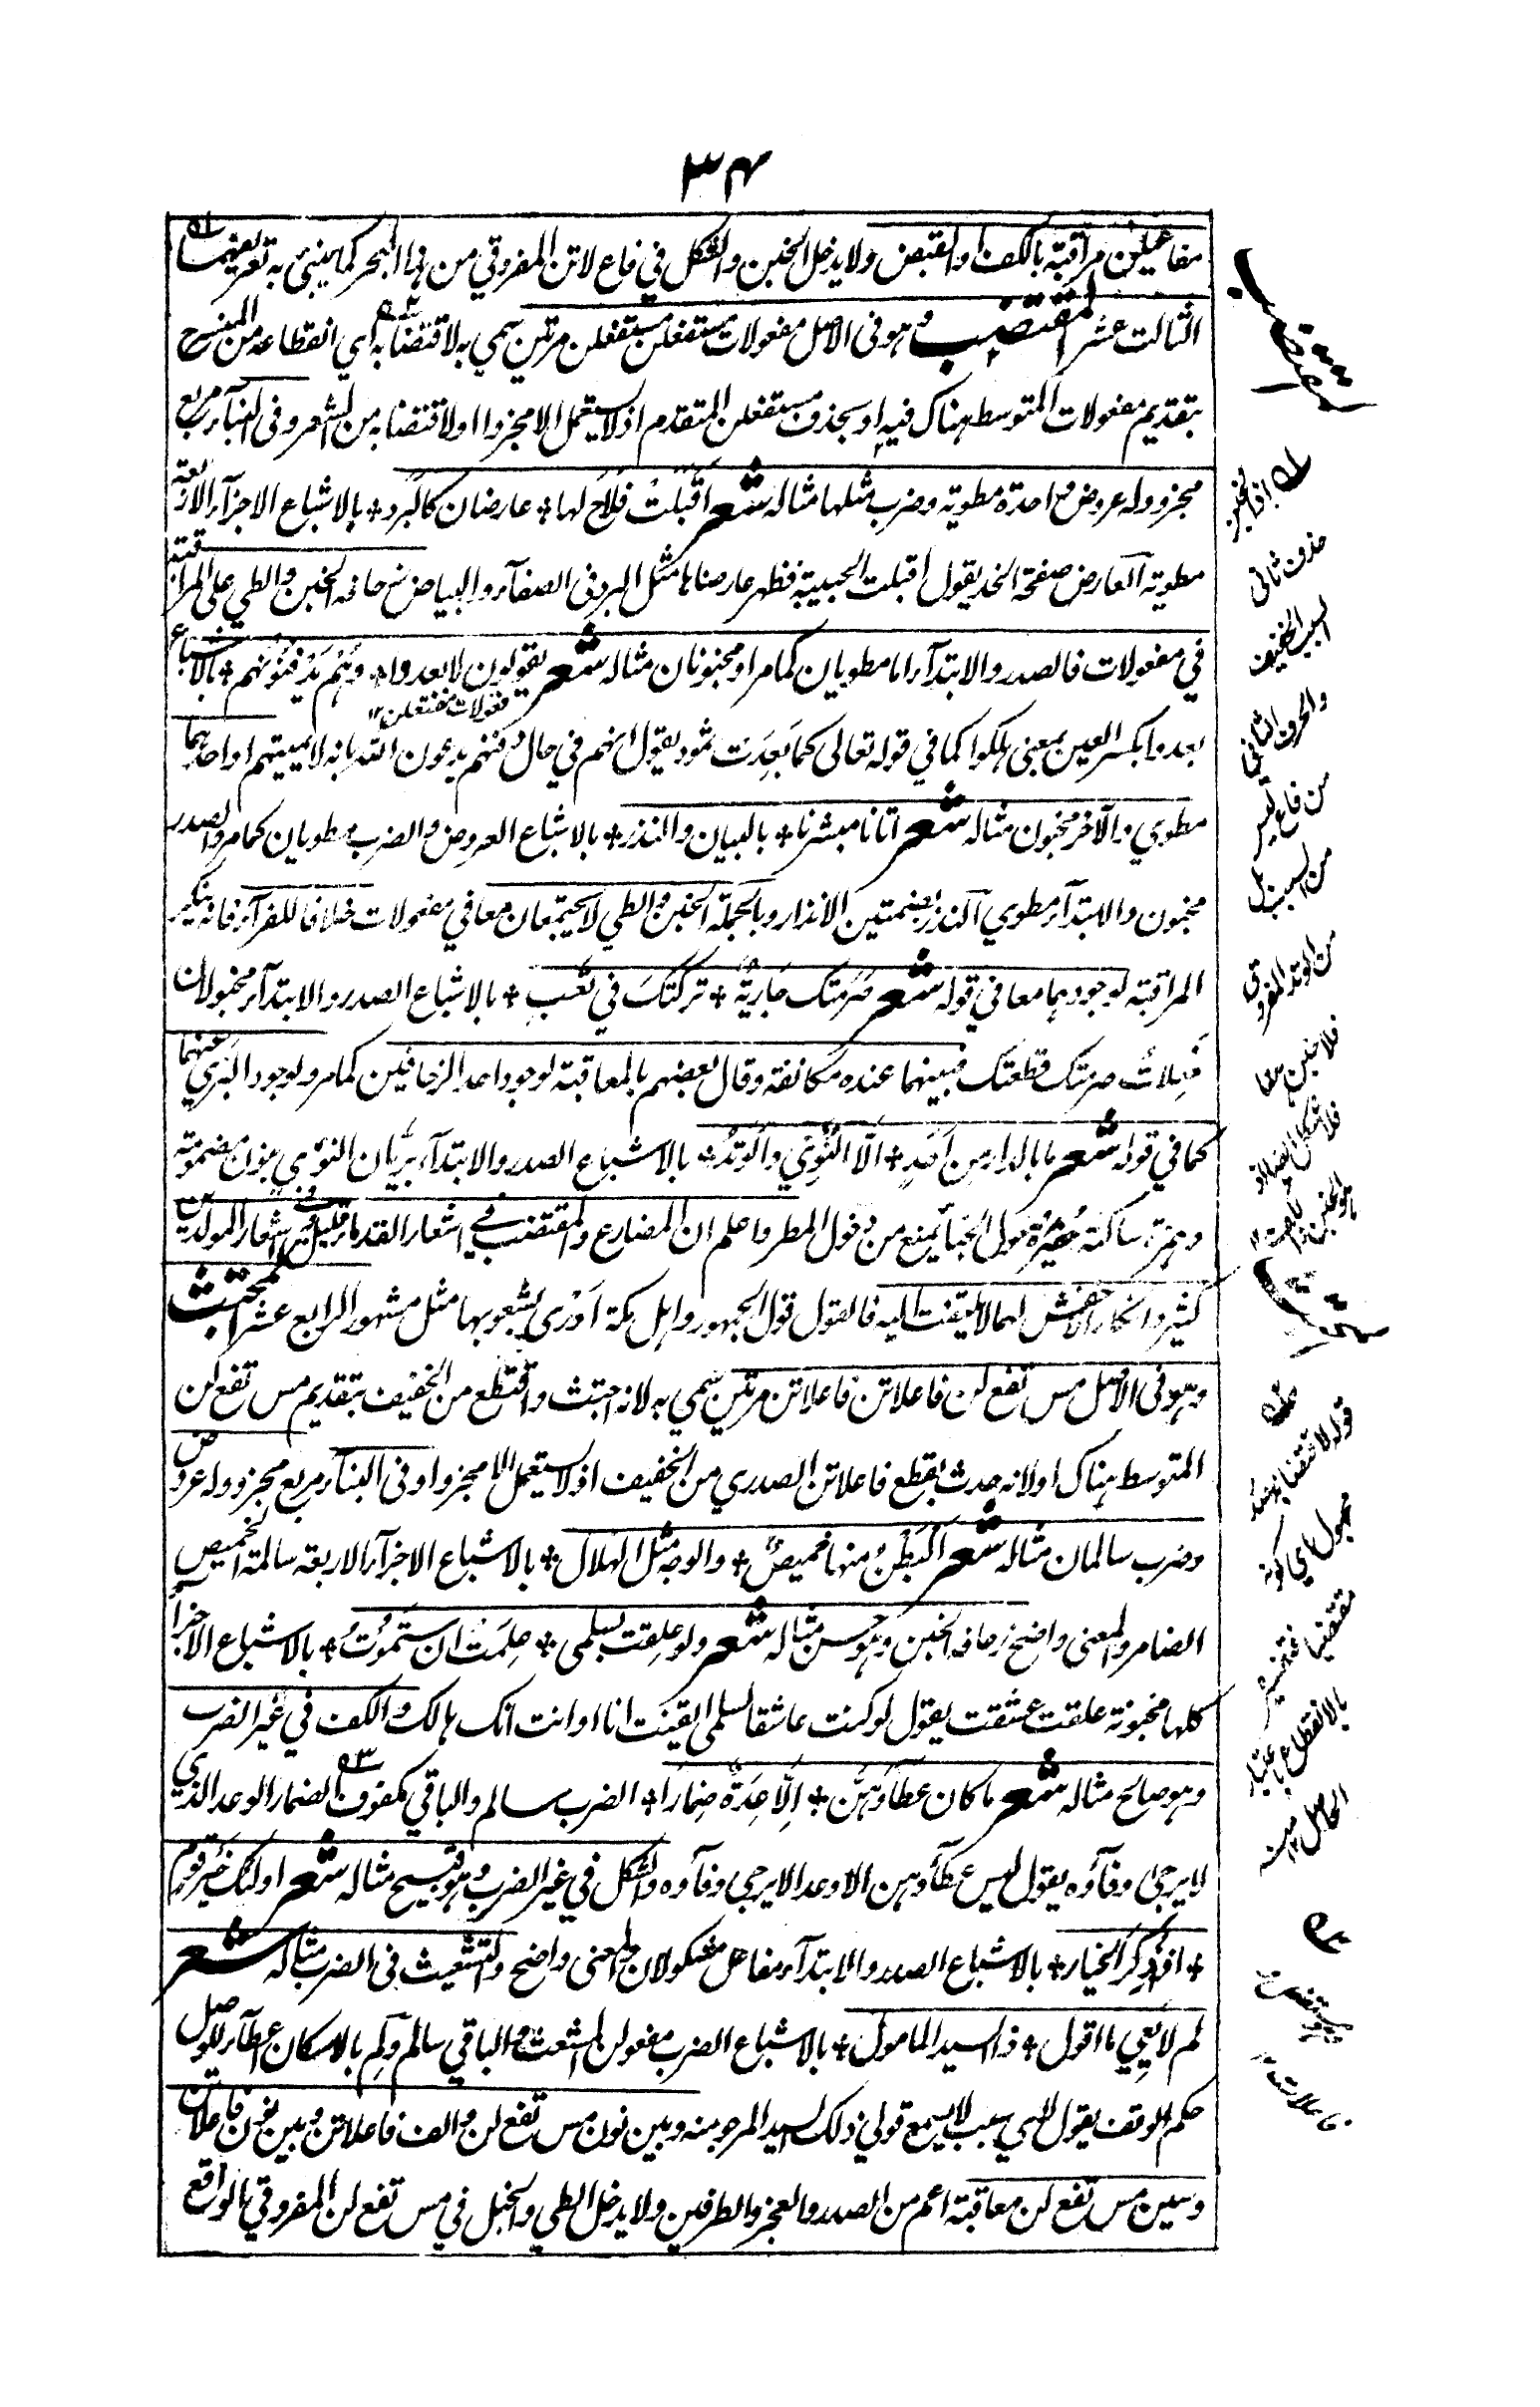 ٣٤
مفاعيلن مراقبة بالكف او القبض ولا يدخل الخبن والشكل في فاع لاتن المفروقي من هذا البحر كما ينبئ به تعريفهما
الثالث عشر المقتضب وهو في الاصل مفعولات مستفعلن مستفعلن مرتين سمي به لاقتضابه اي انقطاعه من المنسرح
بتقديم مفعولات المتوسط هناك فيه او بحذف مستفعلن المتقدم اذ لا يستعمل الا مجزوا او لاقتضابه من الشعر وفي البناء مربع
مجزو وله عروض واحدة مطوية وضرب مثلها مثاله شعر اَقْبَلَتْ فَلَاحَ لها + عارضان كالبرد + بالاشباع الاجزاء الاربعة
مطوية العارض صفحة الخد يقول اقبلت الحبيبة فظهر عارضاها مثل البرد في الصفاء والبياض زحافه الخبن والطي على المراقبة
في مفعولات فالصدر والابتداء اما مطويان كما مر او مخبونان مثاله شعر يقولون لا بعدوا + وهُم يَدْفِنُونَهم + بالاشباع
فعولات مفتعلن ١٢
بعدوا بكسر العين بمعنى هلكوا كما في قوله تعالى كما بَعِدَت ثمود يقول انهم في حال دفنهم يدعون الله بانه لا يميتهم او احدهما
مطوي والآخر مخبون مثاله شعر اتانا مبشرنا + بالبيان والنذر + بالاشباع العروض والضرب مطويان كما مر والصدر
مخبون والابتداء مطوي النذر بضمتين الانذار وبالجملة الخبن والطي لا يجتمعان معا في مفعولات خلافا للفراء فانه ينكر
المراقبة لوجودهما معا في قوله شعر صَرَمتك جَارِيَةٌ + تركتكَ في تَعَبِ + بالاشباع الصدر والابتداء مخبولان
فَعِلاتُ صرمتك قطعتك فبينهما عنده مكانفة وقال بعضهم بالمعاقبة لوجود احد الزحافين كما مر ولوجود البَري عنهما
كما في قوله شعر ما بالدار من اَحَدٍ + اَلّا النُّؤيُ والوَتَدُ + بالاشباع الصدر والابتداء بَرِّيان النؤي بنون مضمومة
وهمزة ساكنة حُفَيْرَة حول الخباء يمنع من دخول المطر واعلم ان المضارع والمقتضب في اشعار القدماء قليل وفي اشعار المولدين
كثير وانكار الاخفش لهما لا يلتفت اليه فالقول قول الجمهور واهل مكة اَدْرٰى بشعوبها مثل مشهور الرابع عشر المجتث
وهو في الاصل مس تفع لن فاعلاتن فاعلاتن مرتين سمي به لانه اجتث واقتطع من الخفيف بتقديم مس تفع لن
المتوسط هناك او لانه حدث بقطع فاعلاتن الصدري من الخفيف اذ لا يستعمل الا مجزوا وفي البناء مربع مجزو وله عروض
وضرب سالمان مثاله شعر اَلْبَطْنُ منها خميصٌ + والوجه مثل الهلال + بالاشباع الاجزاء الاربعة سالمة الخميص
الضامر والمعنى واضح زحافه الخبن وهو حسن مثاله شعر ولو علِقت بسلمى + علِمَت ان ستموتُ + بالاشباع الاجزاء
كلها مخبونة علقت عشقت يقول لو كنت عاشقا لسلمى ايقنت انا او انت انك هالك والكف في غير الضرب
وهو صالح مثاله شعر ما كان عطاؤهن + اِلّا عِدَةً ضِمارَا + الضرب سالم والباقي مكفوف الضمار الوعد الذي
لا يرجى وفاؤه يقول ليس عطاؤهن الا وعد الا يرجى وفاؤه والشكل في غير الضرب وهو قبيح مثاله شعر اولئك خَيْر قوم
+ اذ ذُكِرَ الخيار + بالاشباع الصدر والابتداء مفاعل مشكولان والمعنى واضح والتشعيث في الضرب مثاله شعر
لم لا يَعِي ما اقول + ذا السيد المامول + بالاشباع الضرب مفعولن المشعث والباقي سالم ولَم بالاسكان اعطاء للوصل
حكم الوقف يقول لاي سبب لا يسمع قولي ذلك السيد المرجو منه وبين نون مس تفع لن والف فاعلاتن وبين نون فاعلاتن
وسين مس تفع لن معاقبة اعم من الصدر والعجز والطرفين ولا يدخل الطي والخبل في مس تفع لن المفروقي الواقع
المقتضب
حذف ثاني
السبب الخفيف
والحرف الثاني
من فاع ليس
من السبب بل
من الوتد المفروق
فلا خبن هنا
المجتث
قوله لاقتضابه
مجهول اي كونه
مقتضبا
بالانقطاع باعتبار
الحاصل منه
فاعلات